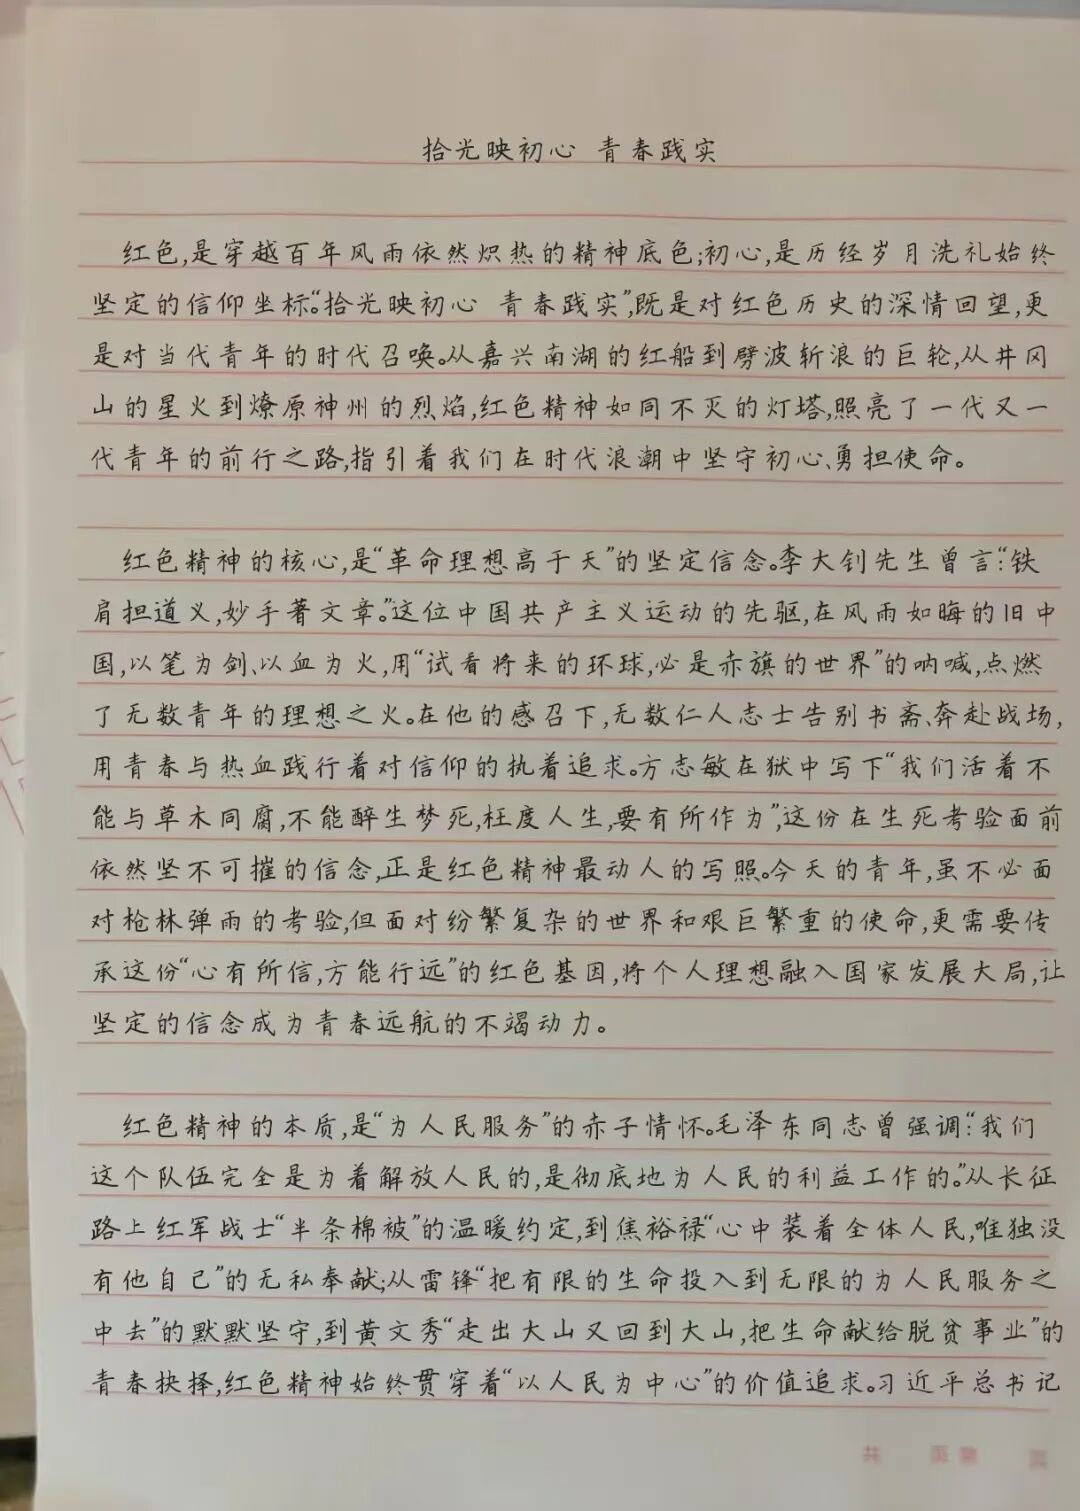 拾光映初心 青春践实
红色,是穿越百年风雨依然炽热的精神底色;初心,是历经岁月洗礼始终
坚定的信仰坐标。“拾光映初心 青春践实”,既是对红色历史的深情回望,更
是对当代青年的时代召唤。从嘉兴南湖的红船到劈波斩浪的巨轮,从井冈
山的星火到燎原神州的烈焰,红色精神如同不灭的灯塔,照亮了一代又一
代青年的前行之路,指引着我们在时代浪潮中坚守初心、勇担使命。
红色精神的核心,是“革命理想高于天”的坚定信念。李大钊先生曾言:“铁
肩担道义,妙手著文章。”这位中国共产主义运动的先驱,在风雨如晦的旧中
国,以笔为剑、以血为火,用“试看将来的环球,必是赤旗的世界”的呐喊,点燃
了无数青年的理想之火。在他的感召下,无数仁人志士告别书斋、奔赴战场,
用青春与热血践行着对信仰的执着追求。方志敏在狱中写下“我们活着不
能与草木同腐,不能醉生梦死,枉度人生,要有所作为”,这份在生死考验面前
依然坚不可摧的信念,正是红色精神最动人的写照。今天的青年,虽不必面
对枪林弹雨的考验,但面对纷繁复杂的世界和艰巨繁重的使命,更需要传
承这份“心有所信,方能行远”的红色基因,将个人理想融入国家发展大局,让
坚定的信念成为青春远航的不竭动力。
红色精神的本质,是“为人民服务”的赤子情怀。毛泽东同志曾强调:“我们
这个队伍完全是为着解放人民的,是彻底地为人民的利益工作的。”从长征
路上红军战士“半条棉被”的温暖约定,到焦裕禄“心中装着全体人民,唯独没
有他自己”的无私奉献;从雷锋“把有限的生命投入到无限的为人民服务之
中去”的默默坚守,到黄文秀“走出大山又回到大山,把生命献给脱贫事业”的
青春抉择,红色精神始终贯穿着“以人民为中心”的价值追求。习近平总书记
共 页 第 页